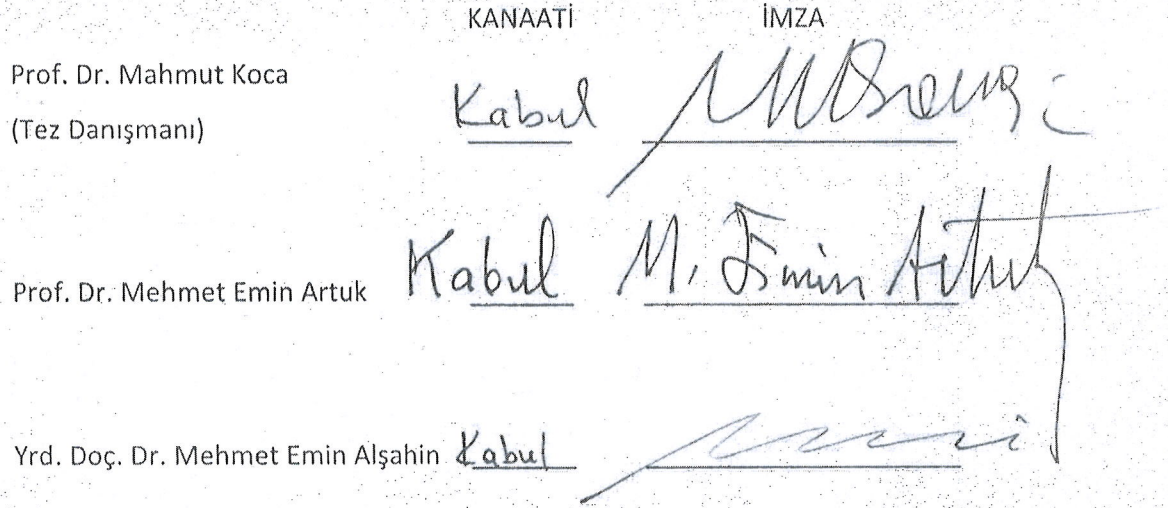 KANAATİ İMZA
Prof. Dr. Mahmut Koca
(Tez Danışmanı) Kabul
Prof. Dr. Mehmet Emin Artuk Kabul M. Emin Artuk
Yrd. Doç. Dr. Mehmet Emin Alşahin Kabul